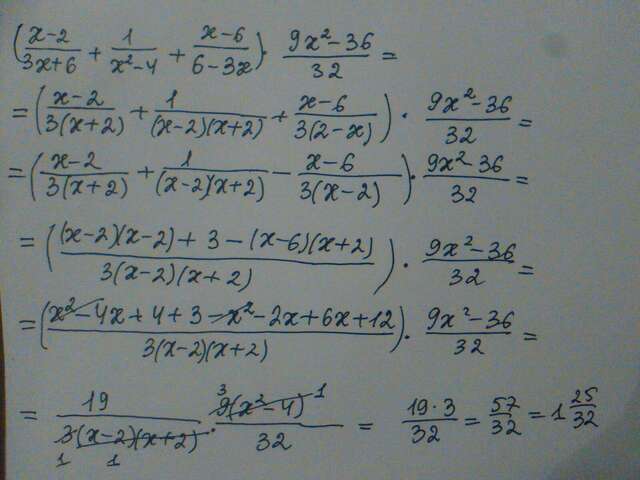 (x-2/3x+6 + 1/x²-4 + x-6/6-3x) · 9x²-36/32 =
= (x-2/3(x+2) + 1/(x-2)(x+2) + x-6/3(2-x)) · 9x²-36/32 =
= (x-2/3(x+2) + 1/(x-2)(x+2) - x-6/3(x-2)) · 9x²-36/32 =
= ((x-2)(x-2)+3-(x-6)(x+2)/3(x-2)(x+2)) · 9x²-36/32 =
= (x²-4x+4+3-x²-2x+6x+12/3(x-2)(x+2)) · 9x²-36/32 =
= 19/3(x-2)(x+2) 1 1 · 3 9(x²-4) 1/32 = 19·3/32 = 57/32 = 1 25/32